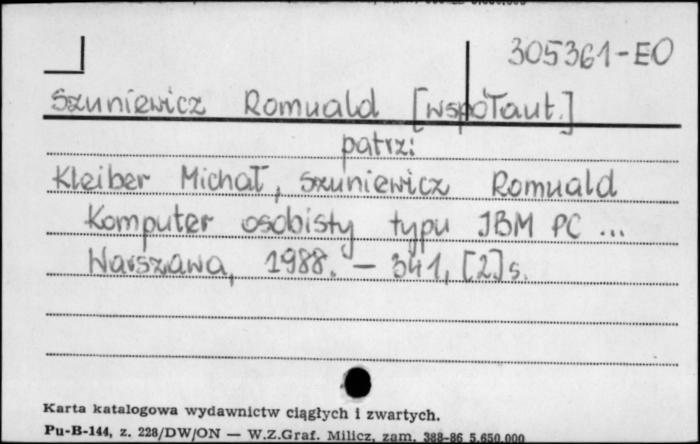 305361-EO
Szuniewicz Romuald [współaut.]
patrz:
Kleiber Michał, Szuniewicz Romuald
Komputer osobisty typu JBM PC ...
Warszawa, 1988. — 341, [2] s.
Karta katalogowa wydawnictw ciągłych i zwartych.
Pu-B-144, z. 228/DW/ON — W.Z.Graf. Milicz, zam. 388-86 5.650.000